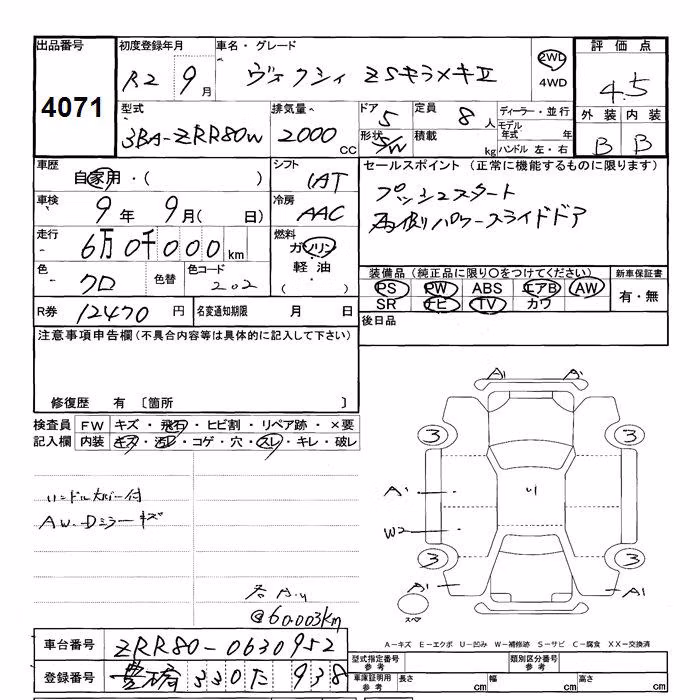 出品番号 初度登録年月 車名・グレード 評価点
4071 R2 9月 ヴォクシィ ZSキラメキⅡ 2WD 4WD 4.5
型式 排気量 ドア 定員 ディーラー・並行 外装 内装
3BA-ZRR80W 2000CC 5 8人 モデル年式 年 B B
形状 S/W 積載 kg ハンドル 左・右
車歴 シフト セールスポイント (正常に機能するものに限ります)
自家用・( ) IAT プッシュスタート
車検 冷房 両側パワースライドドア
9年 9月( 日) AAC
走行 燃料
6万0千000km ガソリン
色 色替 色コード 軽油 装備品 (純正品に限り○をつけてください) 新車保証書
クロ 202 ・( ) PS PW ABS エアB AW 有・無
SR ナビ TV カワ
R券 12470円 名変通知期限 月 日 後日品
注意事項申告欄(不具合内容等は具体的に記入して下さい)
修復歴 有 〔箇所 〕
検査員 FW キズ・飛石・ヒビ割・リペア跡・×要
記入欄 内装 キズ・汚レ・コゲ・穴・スレ・キレ・破レ
ハンドルカバー付
AW.Dミラーキズ
@60003Km
A1 A1
3 3
A1
W2
3 3
A1 A1
スペア
A-キズ E-エクボ U-凹み W-補修跡 S-サビ C-腐食 XX-交換済
車台番号 ZRR80-0630952 型式指定番号 参考 類別区分番号 参考
登録番号 豊橋 330 た 938 車庫証明用 参考 長さ cm 幅 cm 高さ cm